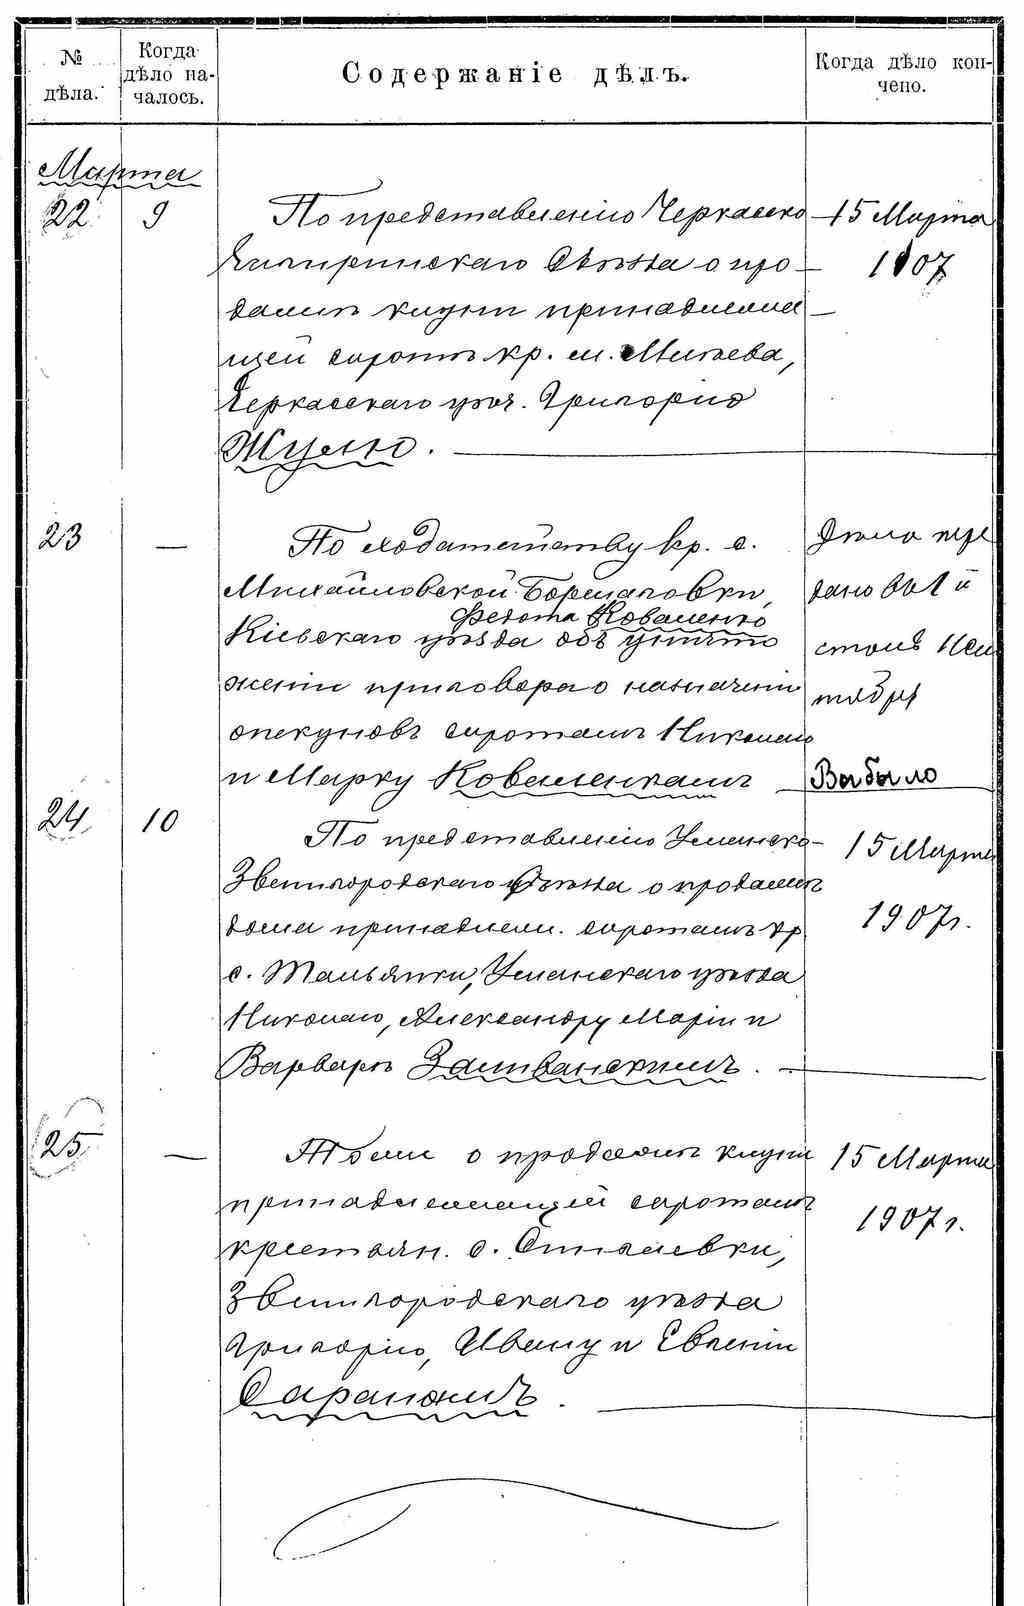 № дѣла.
Когда дѣло началось.
Содержаніе дѣлъ.
Когда дѣло кончено.
Марта
22 9 По представленію Черкасско- 15 Марта
Чигиринскаго Съѣзда о про- 1907
дажѣ клуни принадлежа-
щей сиротѣ кр. м. Млѣева,
Черкасскаго уѣз. Григорію
Жулю.
23 — По ходатайству кр. с. Дѣло пере
Михайловской-Борщаговки, дано въ 1й
Федота Коваленко
Кіевскаго уѣзда объ уничто столъ Сен
женіи приговора о назначеніи тября
опекуновъ сиротамъ Николаю
и Марку Коваленкамъ Выбыло
24 10 По представленію Уманско- 15 Марта
Звенигородскаго Съѣзда о продажѣ
дома принадлеж. сиротамъ кр. 1907 г.
с. Тальянки, Уманскаго уѣзда
Николаю, Александру Маріи и
Варварѣ
25 — Тоже о продажѣ клуни 15 Марта
принадлежащей сиротамъ 1907 г.
крестьян. с.
Звенигородскаго уѣзда
Григорію, Ивану и Евгеніи